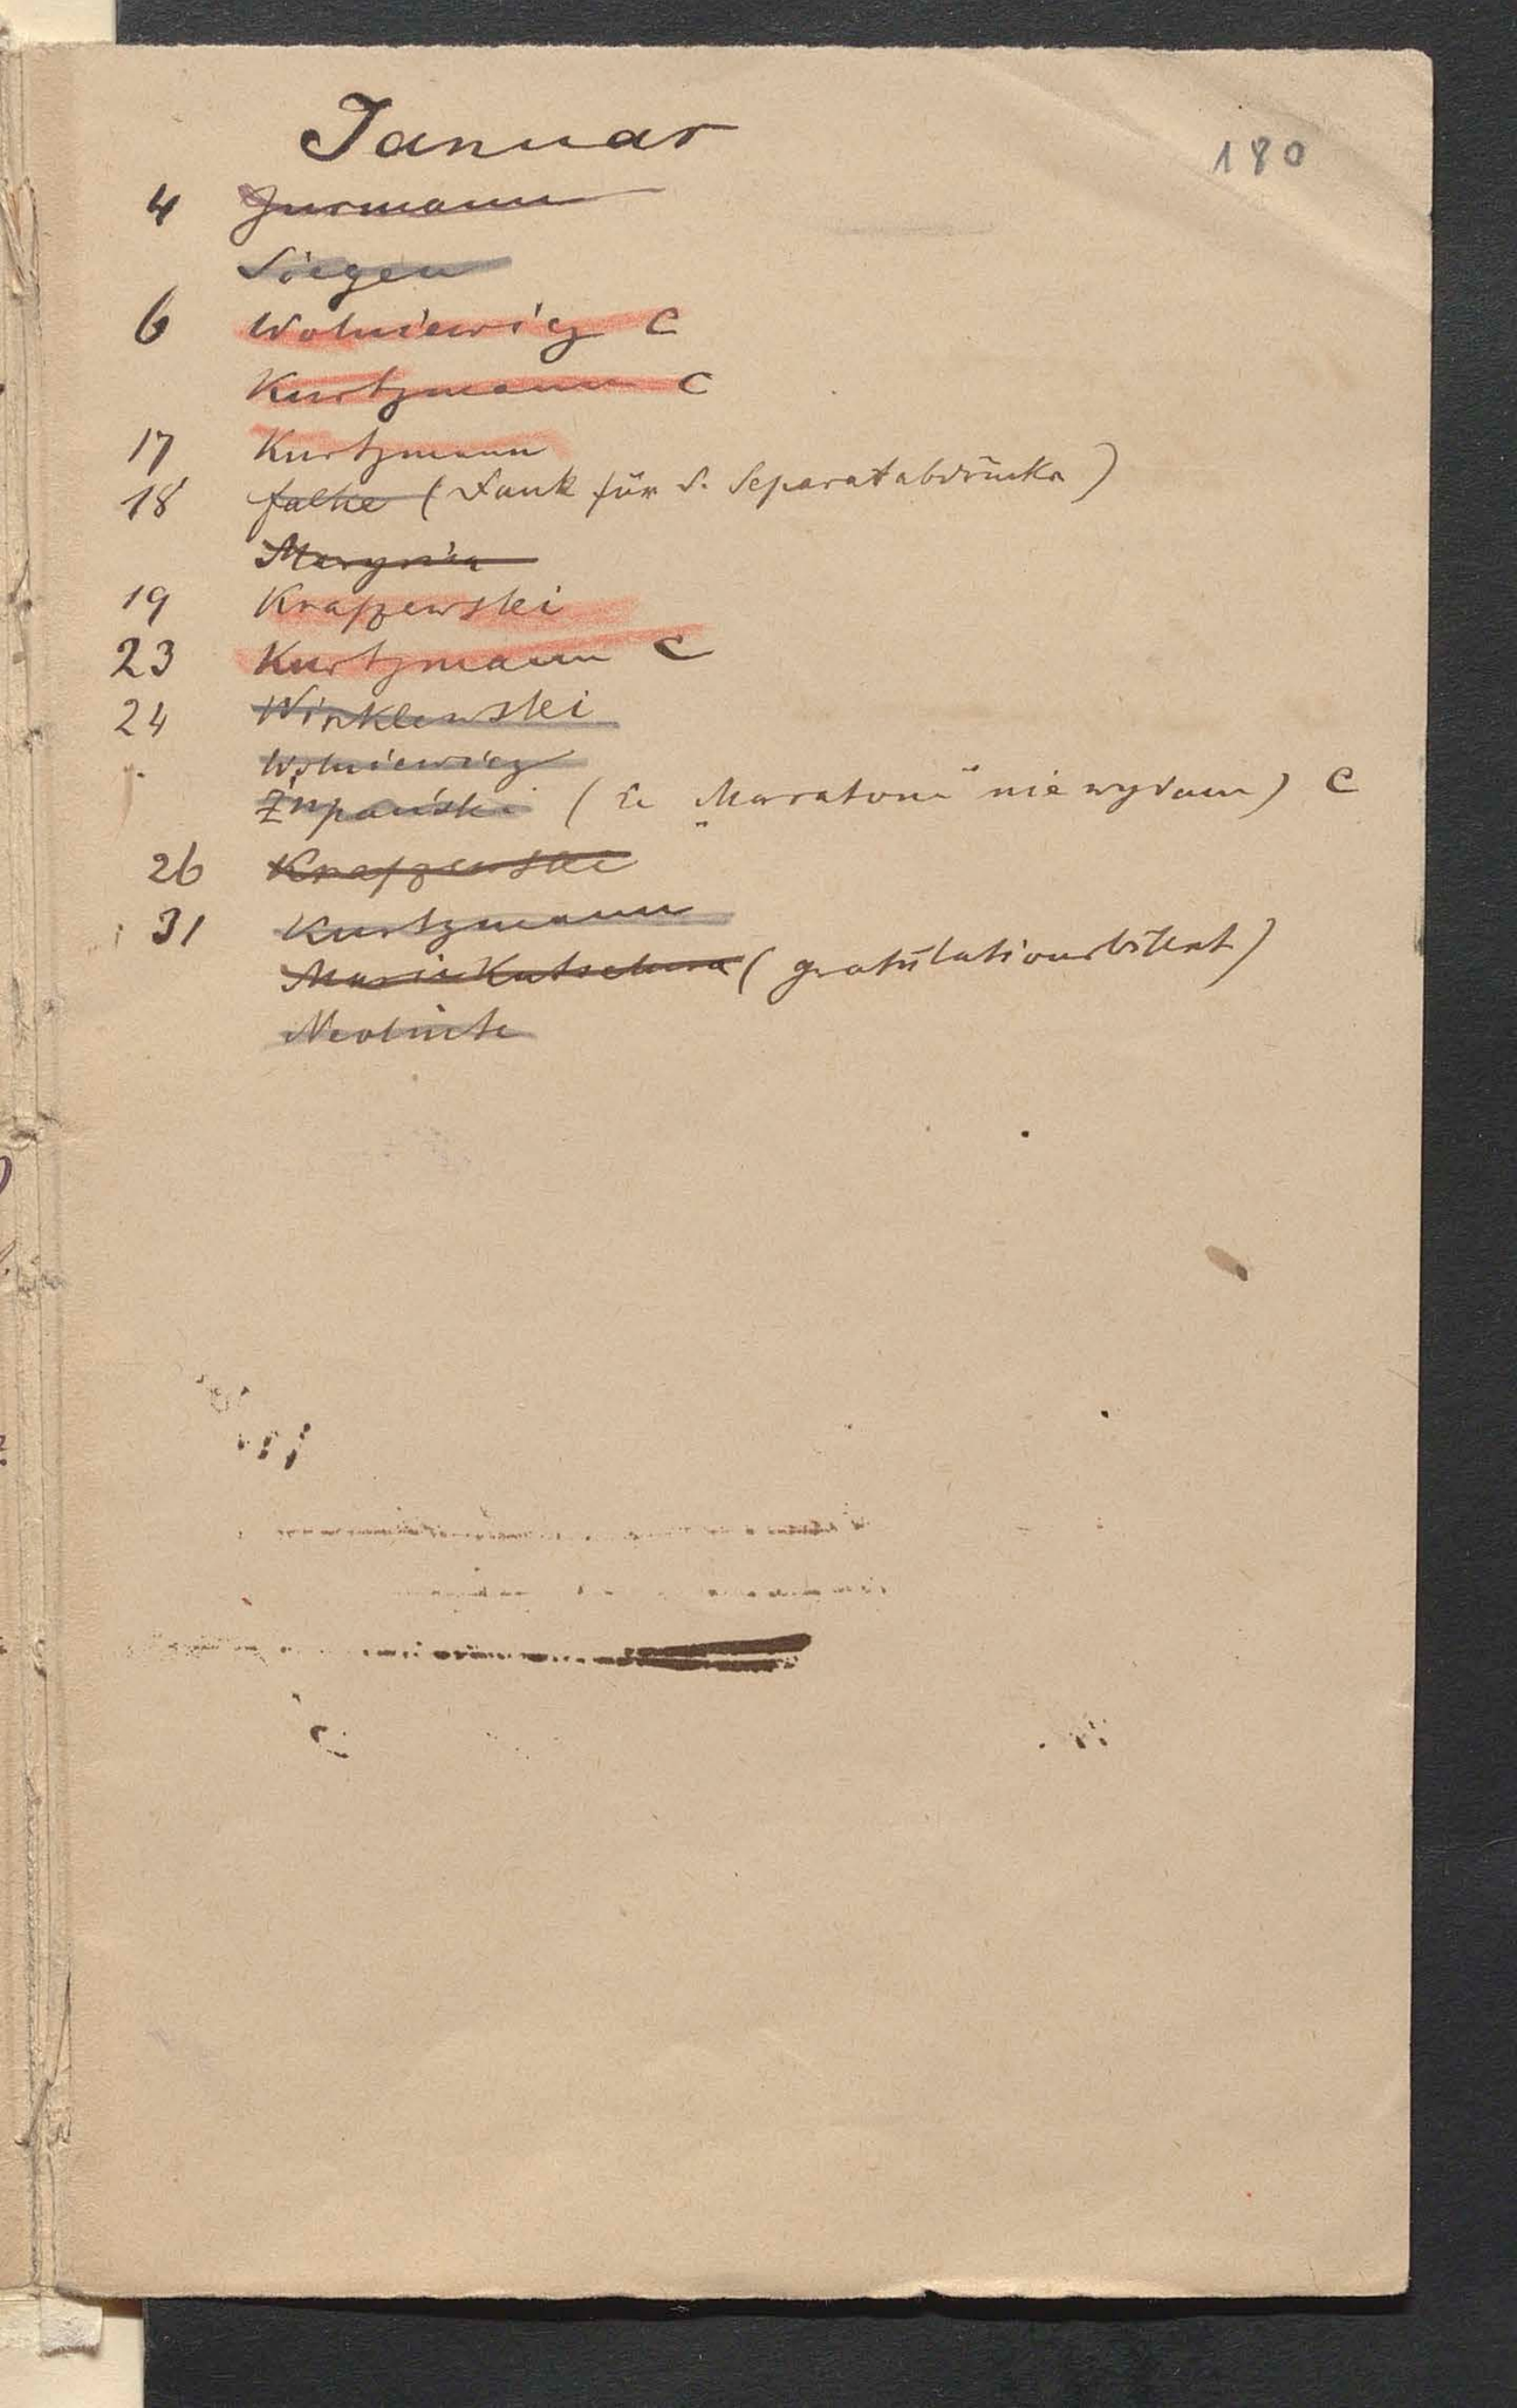 180
Januar
4 Jurmann
Siegen
6 Wolniewicz C
Kurtzmann C
17 Kurtzmann
18 Falke (Dank für d. Separatabdrücke)
Marynia
19 Kraszewski
23 Kurtzmann C
24 Winklewski
Wolniewicz
Żupański („Maratonu“ nie wydam) C
26 Kraszewski
31 Kurtzmann
Marie Kutschera (gratulationsbillent)